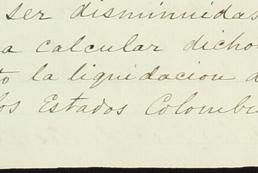 ser disminuidas
a calcular dicho
to la liquidacion d
los Estados Colombi